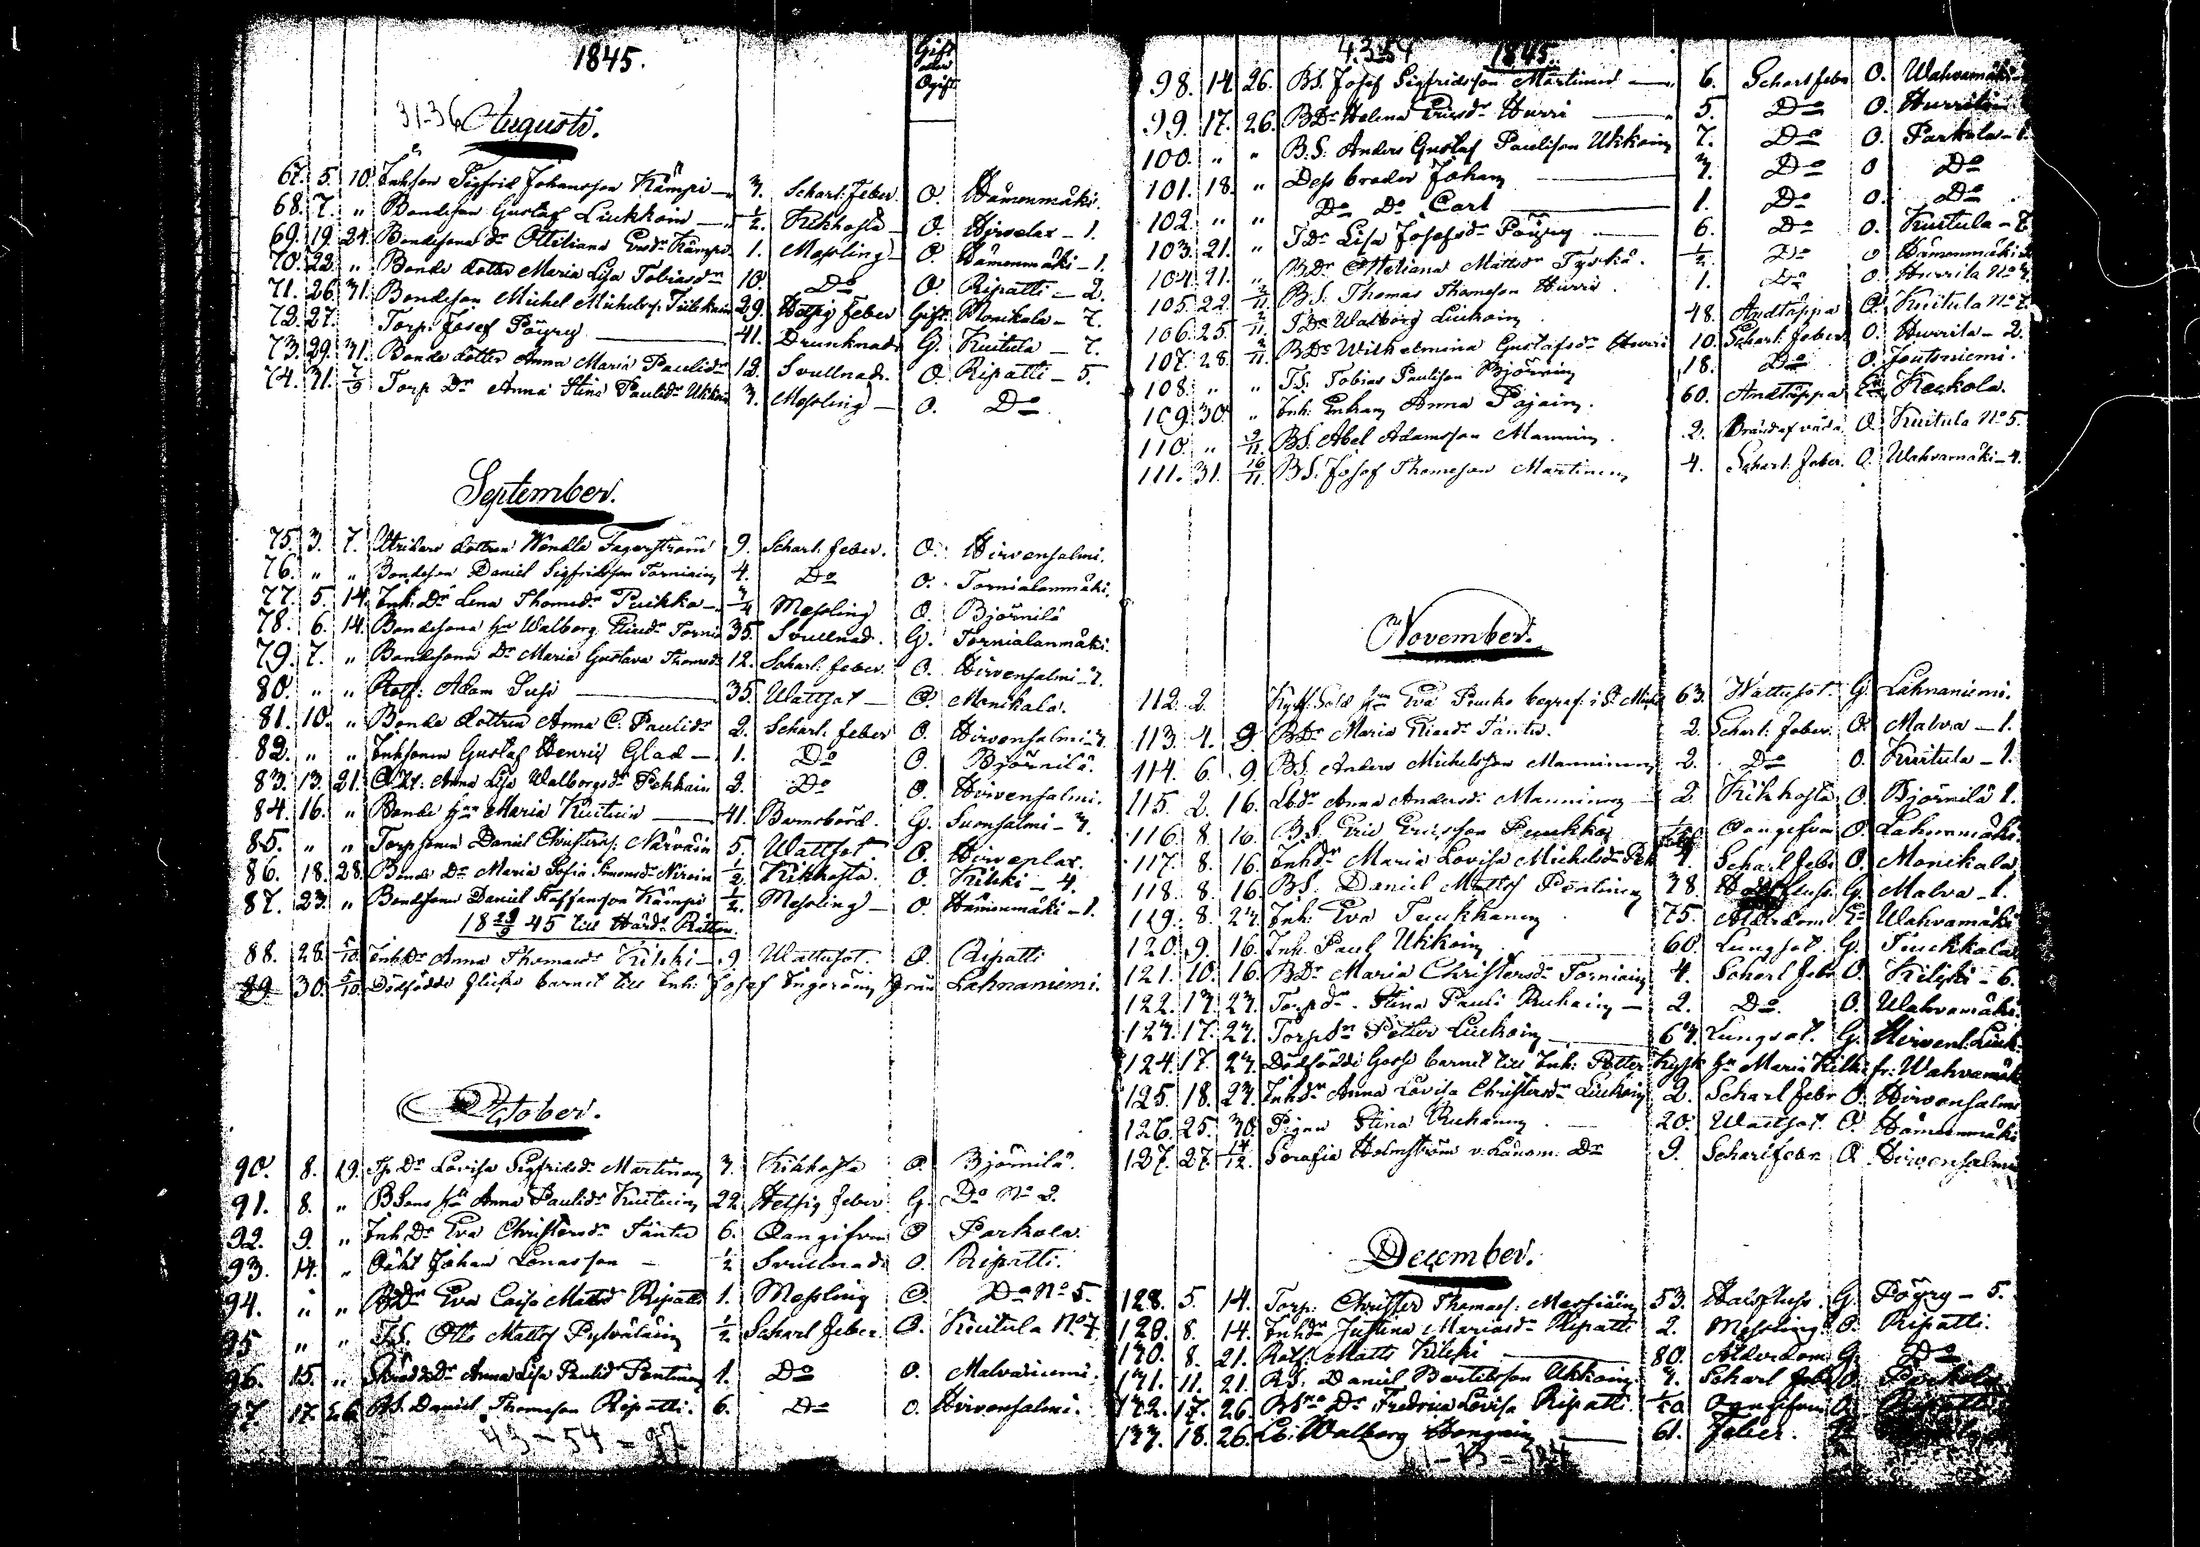 1845.
Gift
eller
Ogift
31-36
Augusti.
67. 5. 10. Inhson Sigfrid Johansson Kämpi — 3. Scharl: feber. O. Hämenmäki.
68. 7. " Bondeson Gustaf Liukkoin — 1/2. Kikhosta — O. Hirvelax – 1.
69. 19. 24. Bondesons Dr Ottiliana Kämpi 1. Messling — O. Hämenmäki – 1.
70. 22. " Bonde dotter Maria Lisa Tobiasdr 10. Do O. Ripatti – 2.
71. 26. 31. Bondeson Michel Michelss: 29. Hetsig feber Gift. Monikala – 7.
72. 27. Torp: Josef Pöyry — 41. Drunknade G. Kuitula — 7.
73. 29. 31. Bonde dotter Anna Maria Paulidr 12. Svullnad. O. Ripatti – 5.
74. 31. 7/9 Torp Dr Anna Stina Paulidr Ukkoin 3. Messling — O. Do
September.
75. 3. 7. dottren Wendla Fagerström 9. Scharl. feber. O. Hirvensalmi.
76. " " Bondeson Daniel Sigfridsson Torniain 4. Do O. Tornialanmäki.
77. 5. 14. Inh: Dr Lena Thomasdr Puikko — 3/4 Messling O. Björnilä
78. 6. 14. Bondesons hu Walborg Tornia 35. Svullnad. G. Tornialanmäki.
79. 7. " Bondesons Dr Maria Gustava Thomasdr 12. Scharl: feber. O. Hirvensalmi – 7.
80. " " Rotf: Adam Susi — 35. Wattsot — O. Monikala.
81. 10. " Bonde dottren Anna C. Paulidr 2. Scharl. feber O. Hirvensalmi – 7.
82. " " Inhsonen Gustaf Henric Glad — 1. Do O. Björnilä.
83. 13. 21. O.kt: Anna Lisa Walborgsdr Pekkain 2. Do O. Hirvensalmi.
84. 16. " Bonde hun Maria Kuitin — 41. Barnsbörd. G. Suonsalmi – 7.
85. " " Torpsonen Daniel Christerss: Närväin 5. Wattsot. O. Hirveplax.
86. 18. 28. Bonde Dr Maria Sofia Simonsdr Niroin 1/2. Kikhosta. O. Kilkki – 4.
87. 23. " Bondsonen Daniel Staffansson Kämpi 1/2. Messling — O. Hämenmäki – 1.
18 29/9 45 till Härds Rätten.
88. 28. 5/10 Inhdr Anna Thomasdr Kilkki — 9 Wattusot. O. Ripatti
89 30. 5/10. Dödfödde flicko barnet till Inh: Josef Ingeröin från Lahnaniemi.
October.
90. 8. 19. Tp Dr Lovisa Sigfridsdr Martinen 3. Kikhosta O. Björnilä.
91. 8. " BSons hu Anna Paulidr Kuitinin 22 Hetsig feber G. Do No 2.
92. 9. " Inh Dr Eva Christersdr Säntti 6. Oangifven O Parkola.
93. 14. " Oäkt Johan Lonasson — 1/2 Svullnad O. Ripatti.
94. " " BDr Eva Caisa Mattsdr Ripatti 1. Messling O. Do No 5.
95 " " T.S. Otto Mattss Pylvänäin 1/2 Scharl feber. O. Kuitula No 7
96. 15. " Dr Anna Lisa Paulidr Pöntinen 1. Do O. Malvaniemi.
97. 17. 26. B.S. Daniel Thomsson Ripatti. 6. Do O. Hirvensalmi.
43 – 54 – 97
4354 1845.
98. 14 26. BS. Josef Sigfridsson Martinen — 6. Scharl feber O. Wahvamäki
99. 17. 26. BDr Helena Ericsdr Hurri — 5. Do O. Hurrila
100. " " B.S. Anders Gustaf Paulisson Ukkoin 7. Do O. Parkola – 1.
101. 18. " Dess broder Johan — 3. Do O Do
102. " " Do Do Carl — 1. Do O. Do
103. 21. " I Dr Lisa Josefsdr Pöyry — 6. Do O. Kuitula – 7.
104. 21. " BDr Ottiliana Mattsdr Tyrkä. 1/2. Do O Hämenmäki
105. 22. 2/11 B.S. Thomas Thomsson Hurri. 1. Do O. Hurrila No
106. 25. 2/11. I Dr Walborg Liukoin 48. Andtäppa O. Kuitula No 7.
107. 28. 2/11. BDr Wilhelmina Gustafsdr Hurri 10. Scharl. feber. O. Hurrila – 2.
108. " " T.S. Tobias Paulisson Björnin 18. Do O. Joutsniemi.
109. 30. " Inh: Enkan Anna Pojain. 60. Andtäppa En. Keskola.
110. " 9/11. BS. Abel Adamsson Manninen. 2. Brändaf våda O. Kuitula No 5.
111. 31. 16/11. BS. Josef Thomsson Martinen 4. Scharl. feber. O. Wahvamäki – 4.
November.
112. 2. Kyrk. Sold hun Eva Puuko begraf: i St. Michel 63. Wattusot. G. Lahnaniemi.
113. 4. 9. BDr Maria Säntti. 2. Scharl. feber. O. Malva – 1.
114. 6. 9. B.S. Anders Michelsson Manninen 2. Do O. Kuitula – 1.
115. 2. 16. Lbdr Anna Andersdr Manninen — 2. Kikhosta O. Björnilä 1.
116. 8 16. B.S. Eric Ericsson Puukko Oangifven O. Lahnaniemi.
117. 8. 16. Inhdr Maria Lovisa Michelsdr 4. Scharl feber O. Monikala
118. 8. 16 BS. Daniel Mattss Pöntinen 38. G. Malva – 1.
119. 8. 23. Inh: Eva Tuukkanen 75. Ålderdom En Wahvamäki
120. 9. 16. Inh. Paul Ukkoin 60. Lungsot. G. Tuukkala
121. 10. 16. BDr Maria Christersdr Torniain 4. Scharl feber O. Kilkki – 6.
122. 13. 23. Torpdr. Stina Pauli Ruhain — 2. Do. O. Wahvamäki
123. 17. 23. Petter Liukoin — 67. Lungsot. G. Hirvens: Liuk.
124. 17. 23. Dödfödde Gosse barnet till Inh: Petter hu Maria Kilki fr: Wahvamäki
125. 18. 23. Inhdr Anna Lovisa Christersdr Liukoin 2. Scharl feber O. Hirvensalmi
126. 25. 30. Pigan Stina Ruhanen — 20. Wattsot. O. Hämenmäki
127. 27. 14/12. Serafia Holmström v. Länsm. Dr 9. Scharlfeber O. Hirvensalmi
December.
128. 5. 14. Torp: Christer Thomass: Massinäin 53. Halsfluss. G. Pöyry – 5.
129. 8. 14. Inhdr Justina Mariasdr Ripatti 2. Messling. O. Ripatti.
130. 8. 21. Rotf: Matts Kilkki — 80. Ålderdom G. Do
131. 11. 21. B.S. Daniel Bertilsson Ukkoin. 3. Scharl feber O. Parkola
132. 17. 26. Bsns Dr Fredrica Lovisa Ripatti. Oangifven O. Ripatti
133. 18. 26. Walborg — 61. Feber.